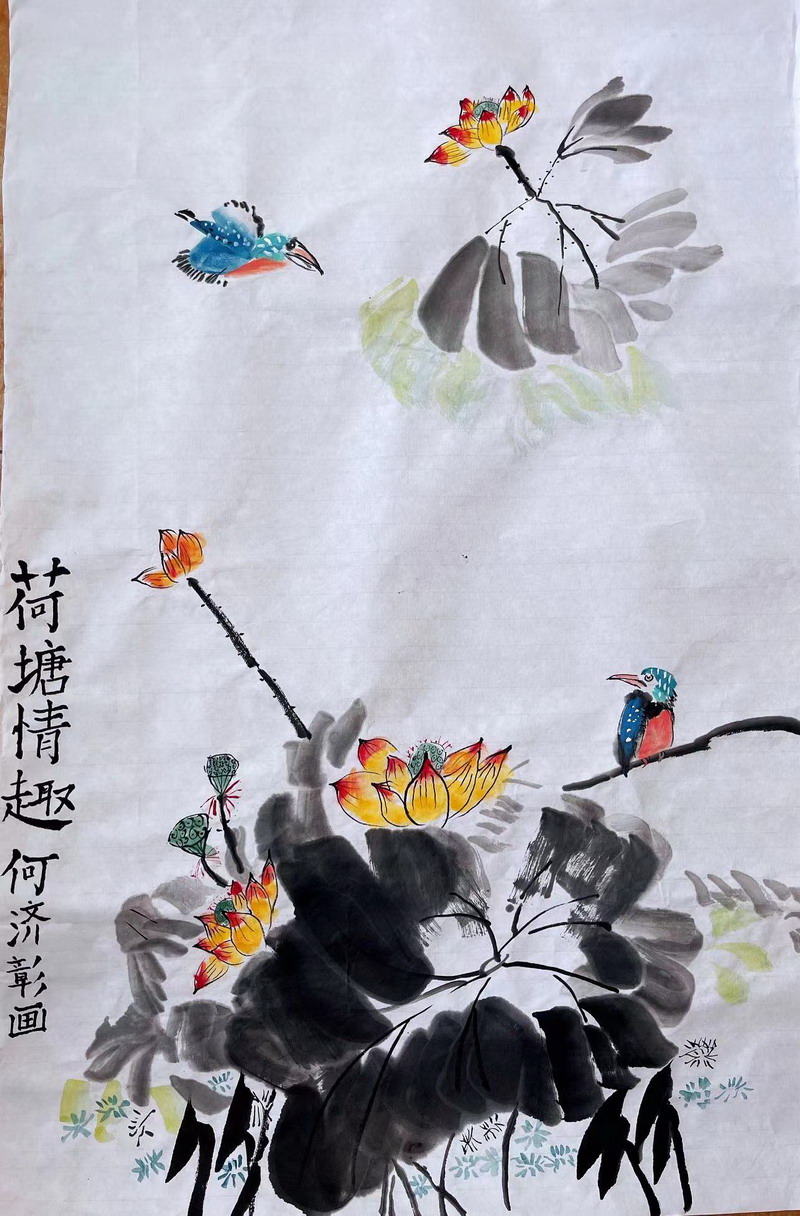 荷塘情趣 何济彰画